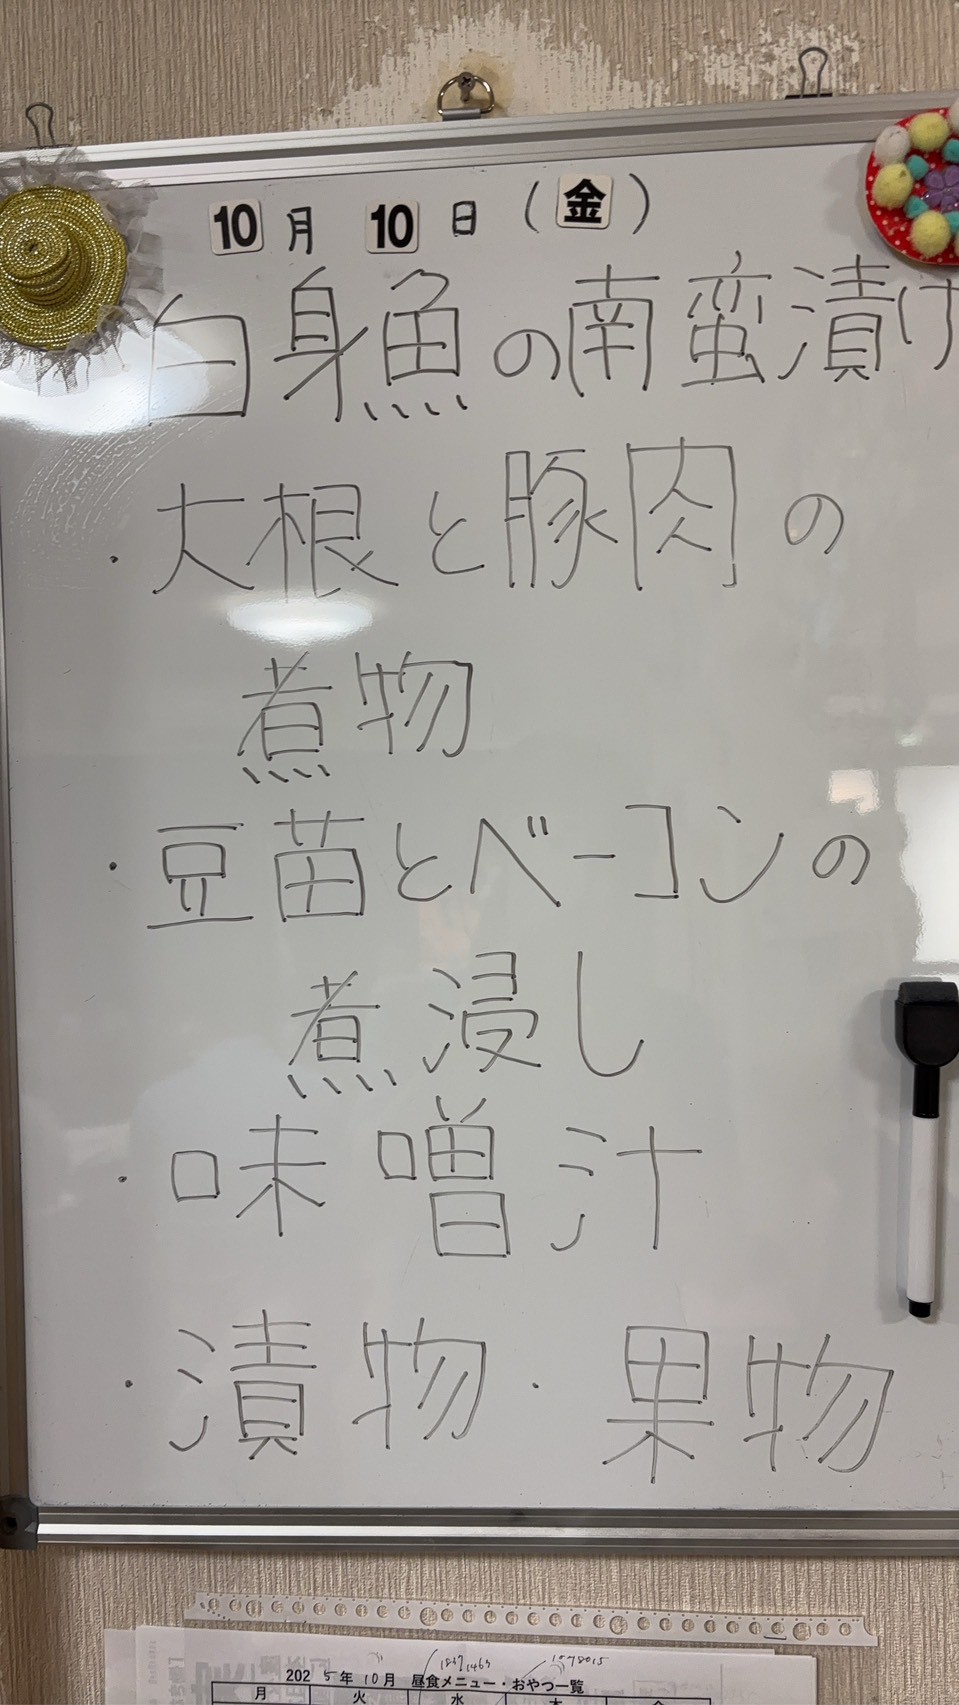 10月10日(金)
白身魚の南蛮漬け
・大根と豚肉の
煮物
・豆苗とベーコンの
煮浸し
・味噌汁
・漬物・果物
2025年10月 昼食メニュー・おやつ一覧
月 火 水 木 金